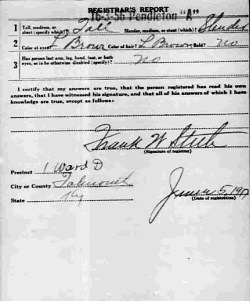 REGISTRAR'S REPORT
16-3-56 Pendleton "A"
1 Tall, medium, or short (specify which)? Tall Slender, medium, or stout (which)? Slender
2 Color of eyes? L Brown Color of hair? L Brown Bald? No
3 Has person lost arm, leg, hand, foot, or both eyes, or is he otherwise disabled (specify)? No
I certify that my answers are true, that the person registered has read his own answers, that I have witnessed his signature, and that all of his answers of which I have knowledge are true, except as follows:
Frank W
(Signature of registrar)
Precinct 1 Ward D
City or County Falmouth
State Ky
June 5, 1917
(Date of registration)